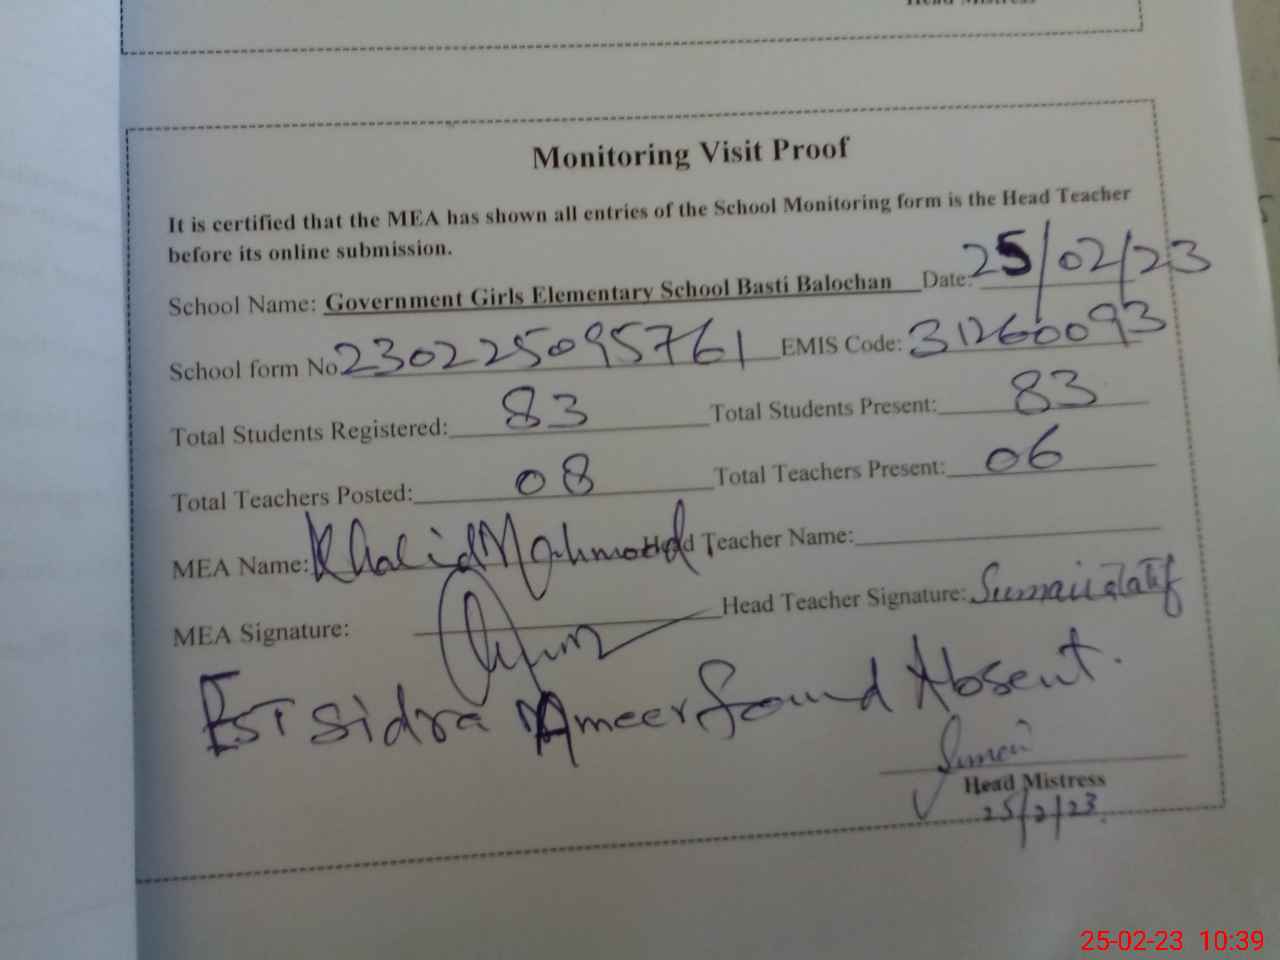 Head Mistress
Monitoring Visit Proof
It is certified that the MEA has shown all entries of the School Monitoring form is the Head Teacher
before its online submission.
School Name: Government Girls Elementary School Basti Balochan Date: 25/02/23
School form No 230225095761 EMIS Code: 31260093
Total Students Registered: 83 Total Students Present: 83
Total Teachers Posted: 08 Total Teachers Present: 06
MEA Name: Khalid Mahmood Head Teacher Name:
MEA Signature: Head Teacher Signature: Sumaira Latif
EST Sidra Ameer found Absent.
Head Mistress
25/2/23
25-02-23 10:39